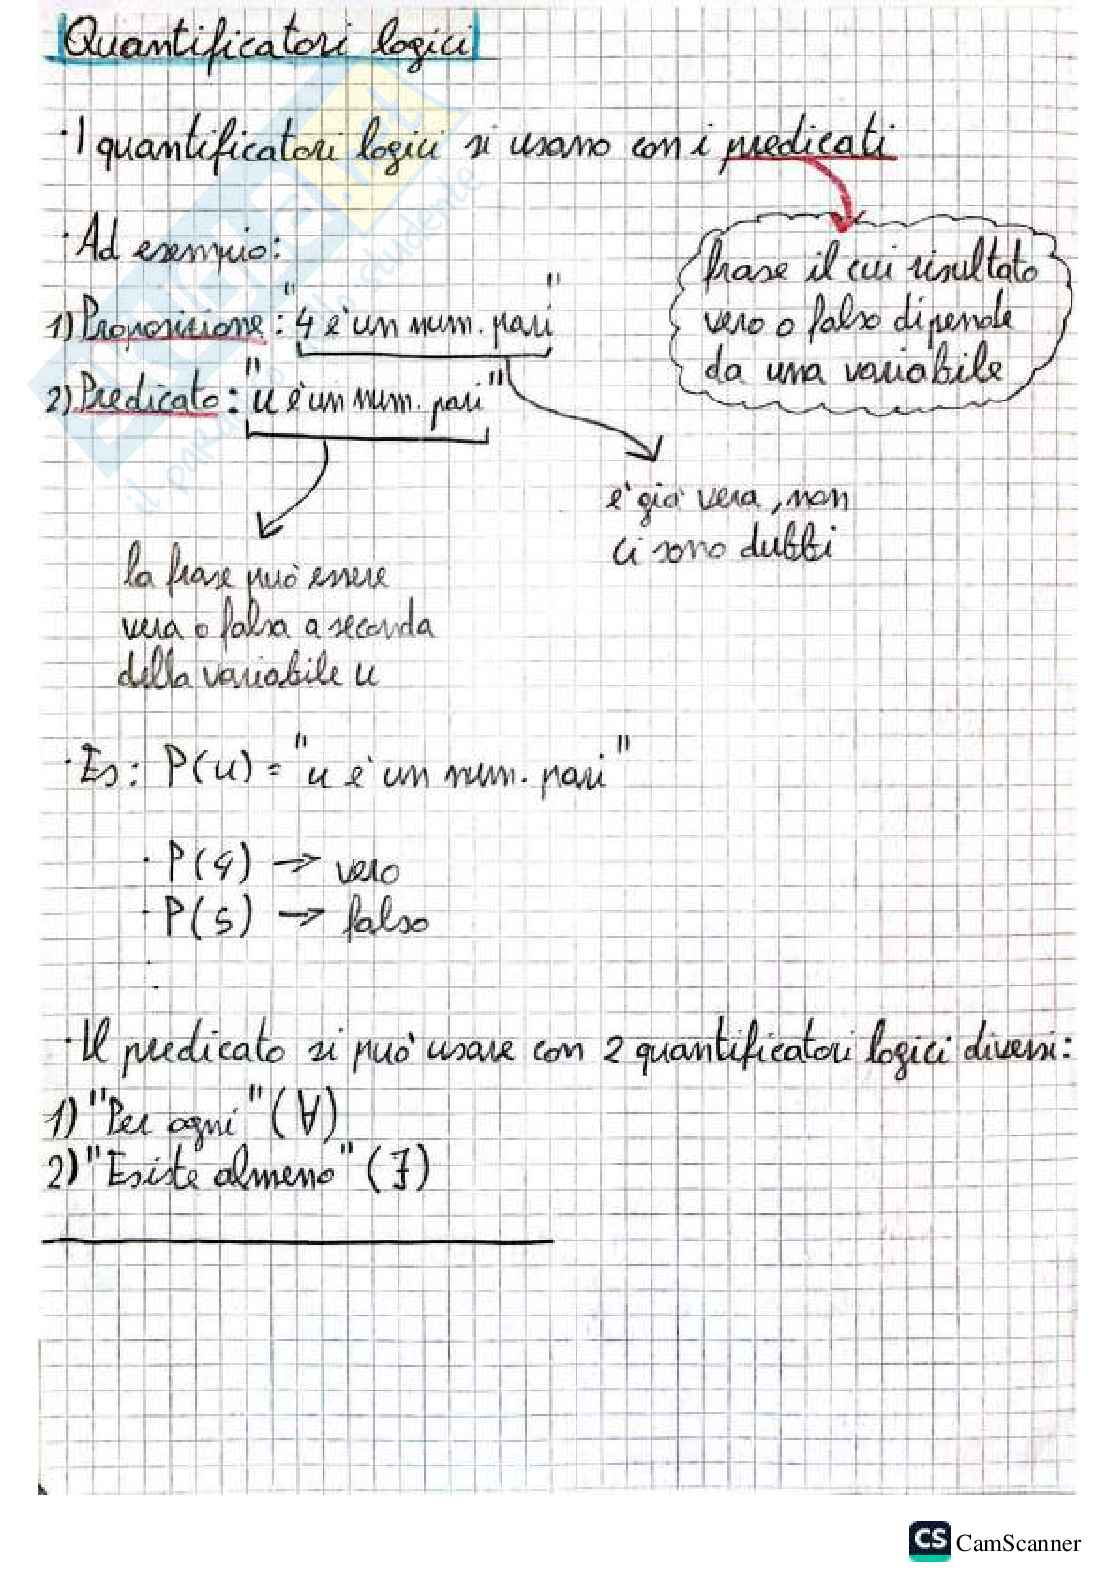 Quantificatori logici
· I quantificatori logici si usano con i predicati
frase il cui risultato
vero o falso dipende
da una variabile
· Ad esempio:
1) Proposizione: "4 è un num. pari"
2) Predicato: "u è un num. pari"
è già vera, non
ci sono dubbi
la frase può essere
vera o falsa a seconda
della variabile u
· Es: P(u) = "u è un num. pari"
· P(4) → vero
· P(5) → falso
· Il predicato si può usare con 2 quantificatori logici diversi:
1) "Per ogni" (∀)
2) "Esiste almeno" (∃)
il paradiso dello studente
CS CamScanner